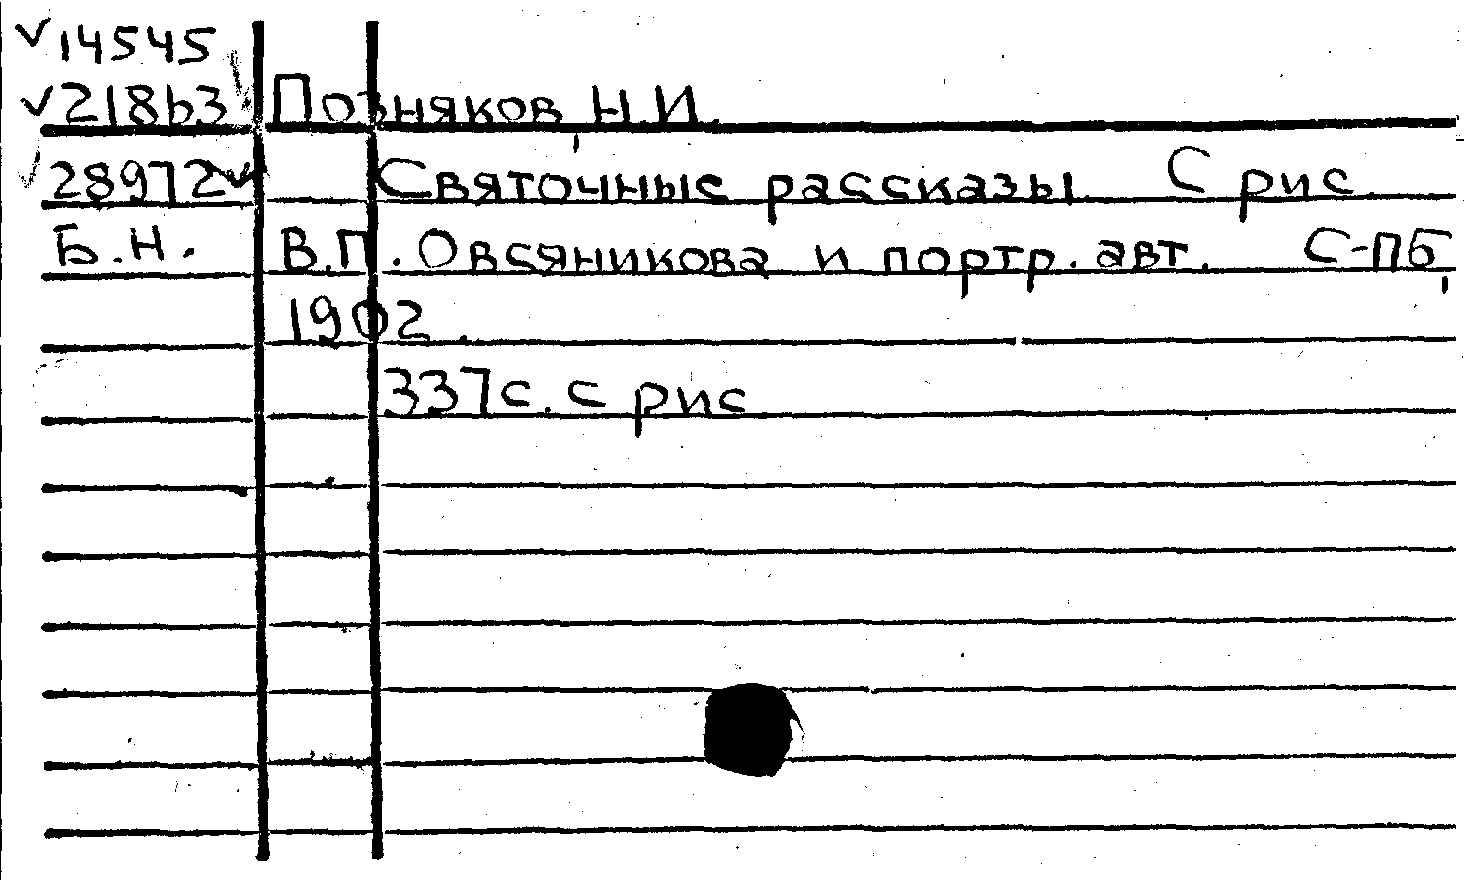 ✓14545
✓218b3 Позняков Н.И.
✓28972✓ Святочные рассказы. С рис.
Б.Н. В.П. Овсяникова и портр. авт. С-ПБ,
1902.
337с. с рис